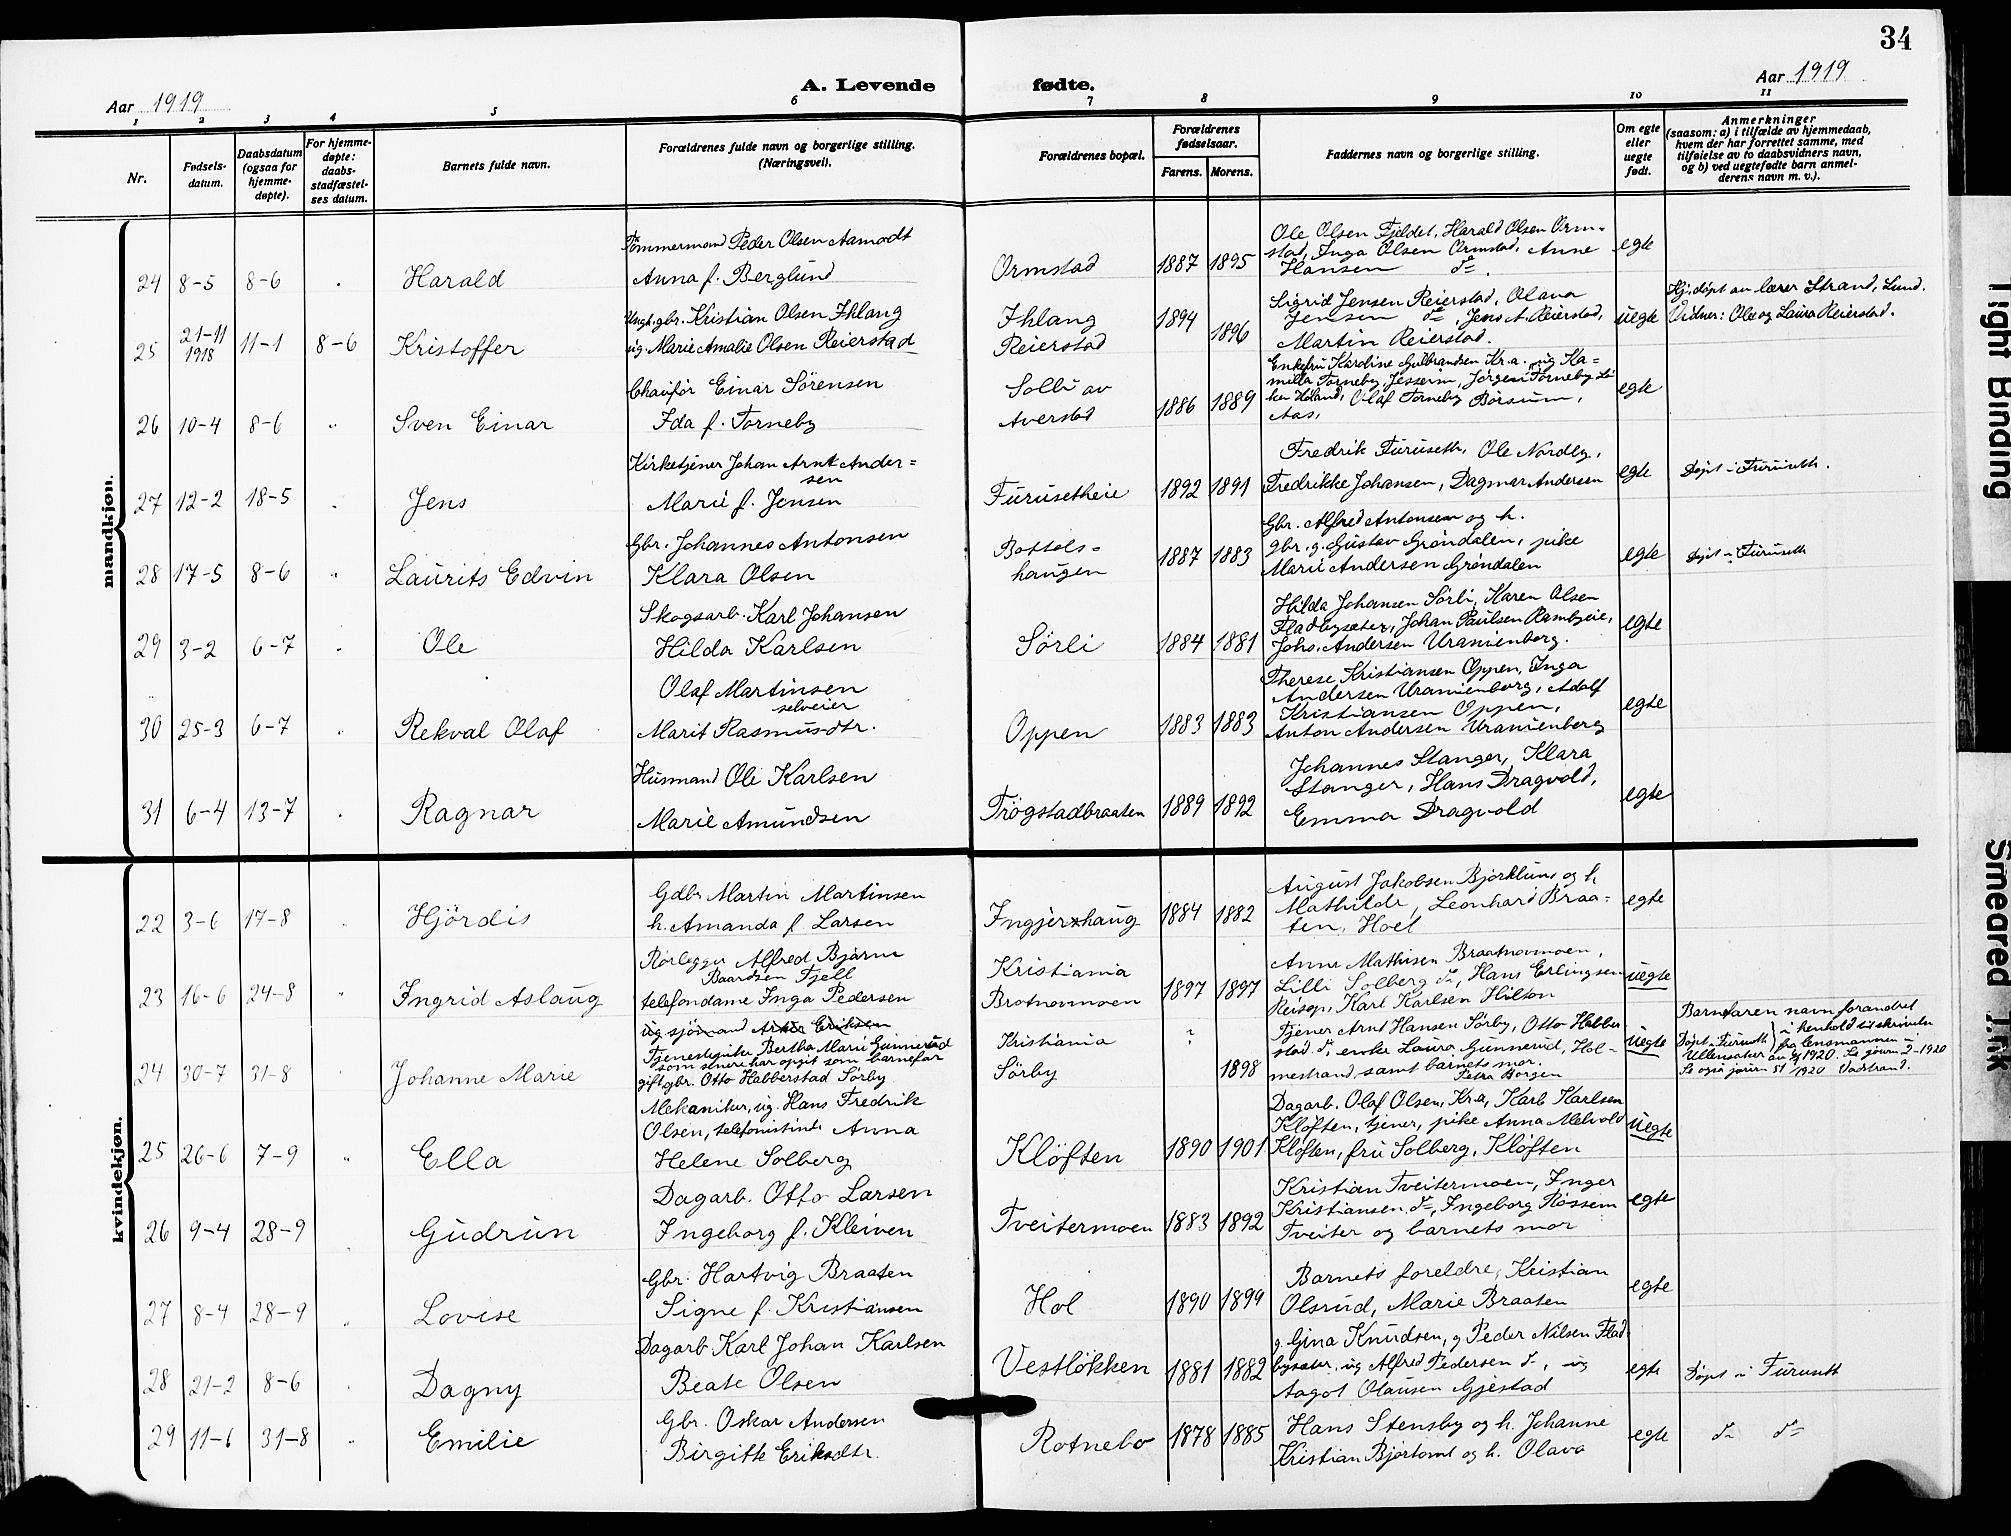 34
Aar 1919
A. Levende fødte.
Aar 1919
1 2 3 4 5 6 7 8 9 10 11
Nr.
Fødsels-
datum.
Daabsdatum
(ogsaa for
hjemme-
døpte).
For hjemme-
døpte:
daabs-
stadfæstel-
ses datum.
Barnets fulde navn.
Forældrenes fulde navn og borgerlige stilling.
(Næringsvei).
Forældrenes bopæl.
Forældrenes
fødselsaar.
Farens. Morens.
Faddernes navn og borgerlige stilling.
Om egte
eller
uegte
født.
Anmerkninger
(saasom: a) i tilfælde av hjemmedaab,
hvem der har forrettet samme, med
tilføielse av to daabsvidners navn,
og b) ved uegtefødte barn anmel-
derens navn m. v.).
mandkjøn.
24 8-5 8-6 Harald
Tømmermand Peder Olsen Aamodt
Anna f. Berglund
Ormstad
1887 1895
Ole Olsen Fjeldet, Harald Olsen Orm-
stad, Inga Olsen Ormstad, Anne
Hansen do.
egte
25 21-11 1918 11-1 8-6 Kristoffer
Ungk. gbr. Kristian Olsen Ihlang
ug. Marie Amalie Olsen Reierstad
Ihlang
Reierstad
1894 1896
Sigrid Jensen Reierstad, Olava
Jensen do, Jens A. Reierstad,
Martin Reierstad.
uegte
Hj. døpt av lærer Strand, Lund.
Vidner: Ole og Laura Reierstad.
26 10-4 8-6 Sven Einar
Chauför Einar Sörensen
Ida f. Torneby
Solli av
Averstad
1886 1889
Enkefru Karoline Gulbrandsen Kr.a. ug Ka-
milla Torneby, Jessheim, Jørgen Torneby Lö-
ken Höland, Olaf Torneby Börsum,
Aas.
egte
27 12-2 18-5 Jens
Kirketjener Johan Arnt Ander-
sen
Marie f. Jensen
Furusetheie
1892 1891
Fredrik Furuseth, Ole Nordby,
Fredrikke Johansen, Dagmar Andersen
egte
Døpt i Furuseth.
28 17-5 8-6 Laurits Edvin
Gbr. Johannes Antonsen
Klara Olsen
Bottols-
haugen
1887 1883
Gbr. Alfred Antonsen og h.
gbr. g. Gustav Gröndalen, pike
Marie Andersen Gröndalen
egte
Døpt i Furuseth
29 3-2 6-7 Ole
Skogsarb. Karl Johansen
Hilda Karlsen
Sörli
1884 1881
Hilda Johansen Sörli, Karen Olsen
Fladbysæter, Johan Paulsen Rambjeie,
Johs. Andersen Uranienborg.
egte
30 25-3 6-7 Rekval Olaf
Olaf Martinsen
selveier
Marit Rasmusdtr.
Oppen
1883 1883
Therese Kristiansen Oppen, Inga
Andersen Uranienborg, Adolf
Kristiansen Oppen,
Anton Andersen Uranienborg
egte
31 6-4 13-7 Ragnar
Husmand Ole Karlsen
Marie Amundsen
Trögstadbraaten
1889 1892
Johannes Stanger, Klara
Stanger, Hans Dragvold,
Emma Dragvold
egte
kvindekjøn.
22 3-6 17-8 Hjördis
Gdbr Martin Martinsen
h. Amanda f. Larsen
Ingjershaug
1884 1882
August Jakobsen Bjorklund og h.
Mathilde, Leonhard Braa-
ten, Hoel
egte
23 16-6 24-8 Ingrid Aslaug
Rörlegger Alfred Bjarne
Baardsen Fjell
telefondame Inga Pedersen
Kristiania
Brotnovmoen
1897 1897
Anne Mathisen Braatnovmoen,
Lilli Solberg do, Hans Erlingsen
Reisop, Karl Karlsen Hilton
uegte
24 30-7 31-8 Johanne Marie
ug sjömand Artur Eriksen
Tjenestepike Bertha Marie Gunnerud
som senere har opgit som barnefar
gift gbr. Otto Habberstad Sörby
Kristiania
Sörby
? 1898
Tjener Arnt Hansen Sörby, Otto Habber-
stad do, enke Laura Gunnerud, Hol-
mestrand, samt barnets mor
Petra Borgen
uegte
Barnefaren navn forandret
Døpt i Furuseth i henhold til skrivelse
fra lensmannen i
Ullensaker av 1920. Se journ 2-1920
Se også journ 51/1920
25 26-6 7-9 Ella
Mekaniker, ug. Hans Fredrik
Olsen, telefonistinde Anna
Helene Solberg
Klöften
1890 1901
Dagarb. Olaf Olsen, Kr.a, Karl Karlsen
Klöften, tjener, pike Anna Melvold
Klöften, fru Solberg, Klöften
uegte
26 9-4 28-9 Gudrun
Dagarb. Otto Larsen
Ingeborg f. Kleiven
Tveitermoen
1883 1892
Kristian Tveitermoen, Inger
Kristiansen do, Ingeborg Rossem
Tveiter og barnets mor
egte
27 8-4 28-9 Lovise
Gbr. Hartvig Braaten
Signe f. Kristiansen
Hol
1890 1899
Barnets foreldre, Kristian
Olsrud, Marie Braaten
egte
28 21-2 8-6 Dagny
Dagarb Karl Johan Karlsen
Beate Olsen
Vestlökken
1881 1882
g. Gina Knudsen, g Peder Nilsen Flad-
bysæter, ug Alfred Pedersen do, ug
Aagot Olausen Gjestad
egte
Døpt i Furuseth
29 11-6 31-8 Emilie
Gbr. Oskar Andersen
Birgitte Eriksdtr.
Rotnebo
1878 1885
Hans Stensby og h. Johanne
Kristian Bjørtomt og h. Olava
egte
do do
Tight Binding
Smeared Ink